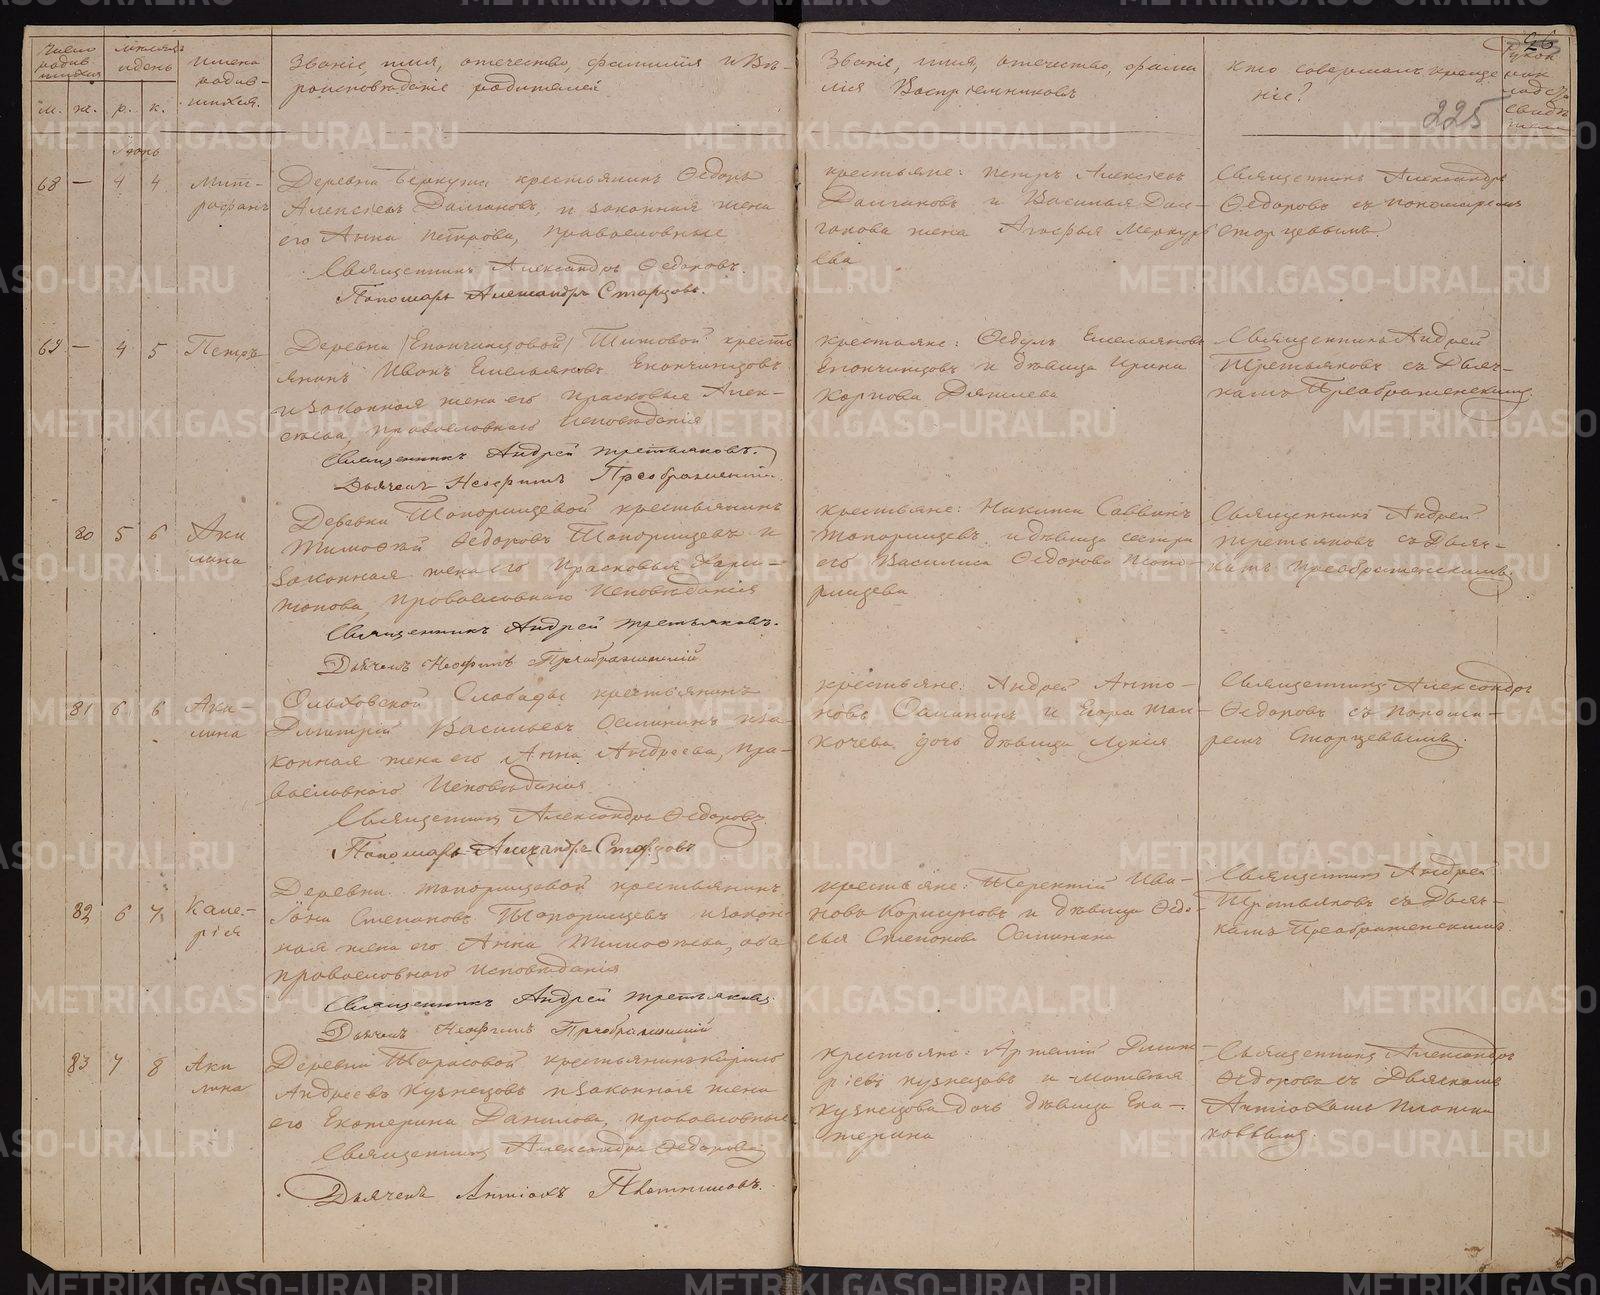 Число родившихся
м. ж.
месяцъ и день
р. к.
имена родив-
шихся.
Званіе, имя, отечество, фамилія и Вѣ-
роисповѣданіе родителей
Званіе, имя, отечество, фами
лія Воспріемниковъ
Кто совершалъ креще
ніе?
225
Іюнь
68 — 4 4 Мит-
рофанъ
Деревни Беркута крестьянинъ Ѳедоръ
Алексѣевъ Долгановъ, и законная жена
его Анна Петрова, православные
Священникъ Александръ Ѳедоровъ.
Пономарь Александръ Старцовъ.
крестьяне: Петръ Алексѣевъ
Долгановъ и Василья Дол-
ганова жена Агафья Меркурь
ева
Священникъ Александръ
Ѳедоровъ съ пономаремъ
Старцевымъ.
69 — 4 5 Петръ
Деревни (Епанчинцовой) Титовой кресть
янинъ Иванъ Емельяновъ Епанчинцовъ
и законная жена его Прасковья Алек-
сѣева, православнаго исповѣданія
Священникъ Андрей Третьяковъ.
Дьячекъ Неофитъ Преображенскій.
крестьяне: Ѳедулъ Емельяновъ
Епанчинцовъ и дѣвица Ирина
Карпова
Священникъ Андрей
Третьяковъ съ Дьяч-
комъ Преображенскимъ.
80 5 6 Аки
лина
Деревни Топорищевой крестьянинъ
Тимоѳей Ѳедоровъ Топорищевъ и
законная жена его Прасковья Хари-
тонова, православнаго исповѣданія
Священникъ Андрей Третьяковъ.
Дьячекъ Неофитъ Преображенскій
крестьяне: Никита Саввинъ
Топорищевъ и дѣвица сестра
его Василиса Ѳедорова Топо-
рищева
Священникъ Андрей
Третьяковъ съ Дьяч-
комъ Преображенскимъ
81 6 6 Аки-
лина
Ольховской Слободы крестьянинъ
Дмитрій Васильевъ Осминин и за-
конная жена его Анна Андреева, пра-
вославнаго исповѣданія
Священникъ Александръ Ѳедоровъ.
Пономарь Александръ Старцовъ
крестьяне: Андрей Анто-
новъ Осминин и Егора Тол-
кочева дочь дѣвица Лукія
Священникъ Александръ
Ѳедоровъ съ понома-
ремъ Старцевымъ.
82 6 7 Кале-
рія
Деревни Топорищевой крестьянинъ
Іона Степановъ Топорищевъ и закон-
ная жена его Анна Тимоѳеева, оба
православнаго исповѣданія
Священникъ Андрей Третьяковъ.
Дьячекъ Неофитъ Преображенскій
крестьяне: Терентій Ива-
новъ и дѣвица Ѳедо-
сья Степанова Осминина
Священникъ Андрей
Третьяковъ съ Дьяч-
комъ Преображенскимъ.
83 7 8 Аки
лина
Деревни Тарасовой крестьянинъ Кирило
Андреевъ Кузнецовъ и законная жена
его Екатерина Данилова, православные
Священникъ Александръ Ѳедоровъ
Дьячекъ Антіохъ Плотниковъ.
крестьяне: Артемій Григо-
ріевъ Кузнецовъ и Матвѣя
Кузнецова дочь дѣвица Ека-
терина
Священникъ Александръ
Ѳедоровъ съ Дьячкомъ
Антіохомъ Плотни
ковымъ.
METRIKI.GASO-URAL.RU